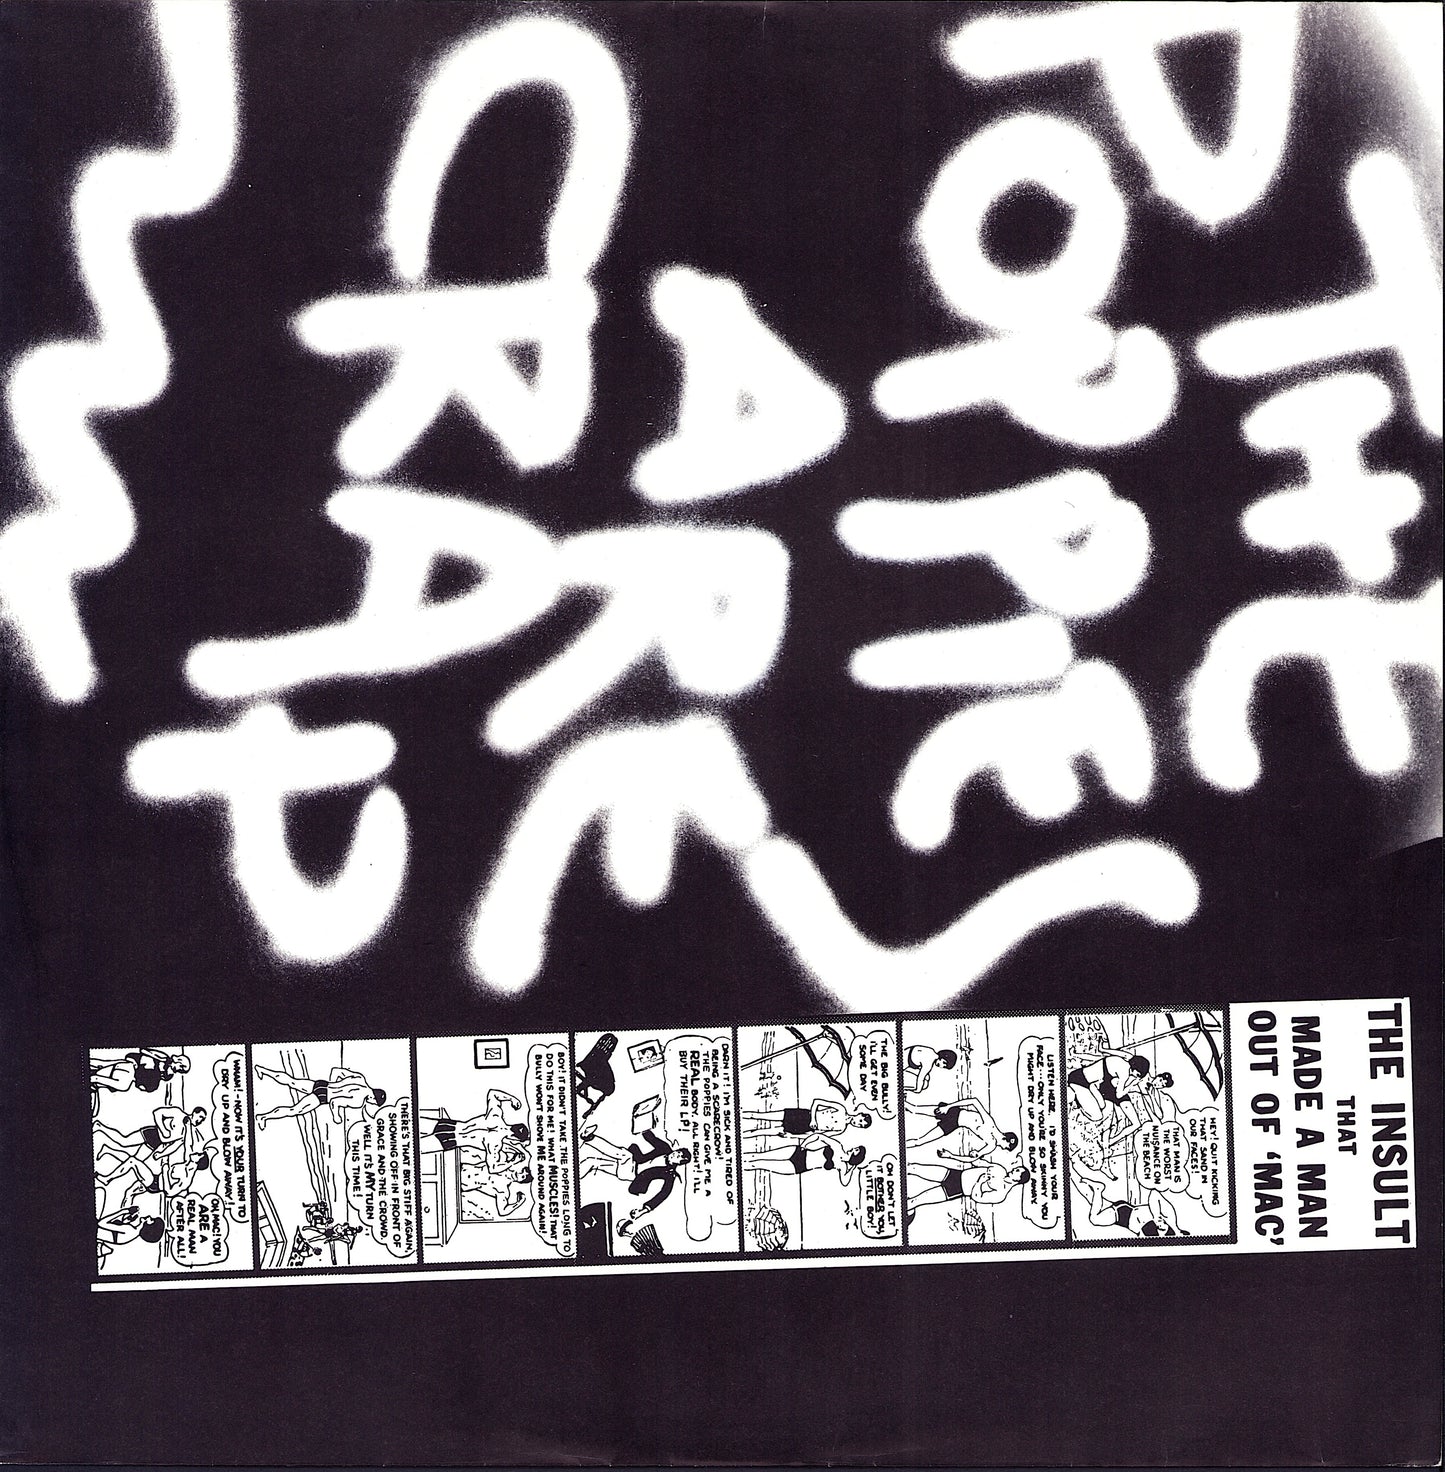 THE
POPPIES
ARE
THE INSULT
THAT
MADE A MAN
OUT OF 'MAC'
HEY! QUIT KICKING
THAT SAND IN
OUR FACES!
THAT MAN IS
THE WORST
NUISANCE ON
THE BEACH
LISTEN HERE. I'D SMASH YOUR
FACE.. ONLY YOU'RE SO SKINNY YOU
MIGHT DRY UP AND BLOW AWAY.
THE BIG BULLY!
I'LL GET EVEN
SOME DAY
OH DON'T LET
IT BOTHER YOU,
LITTLE BOY!
DARN IT! I'M SICK AND TIRED OF
BEING A SCARECROW!
THE POPPIES CAN GIVE ME A
REAL BODY. ALL RIGHT! I'LL
BUY THEIR LP!
BOY! IT DIDN'T TAKE THE POPPIES LONG TO
DO THIS FOR ME! WHAT MUSCLES! THAT
BULLY WON'T SHOVE ME AROUND AGAIN!
THERE'S THAT BIG STIFF AGAIN,
SHOWING OFF IN FRONT OF
GRACE AND THE CROWD.
WELL, IT'S MY TURN
THIS TIME!
NOW IT'S YOUR TURN TO
DRY UP AND BLOW AWAY!
OH, MAC! YOU
ARE A
REAL MAN
AFTER ALL!